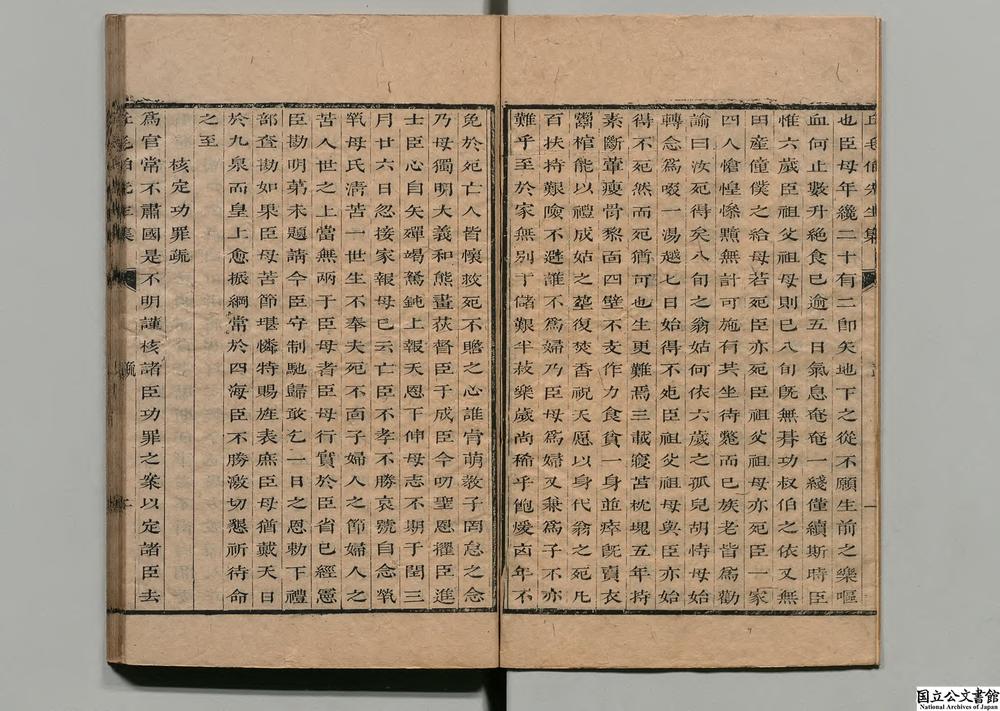 也臣母年纔二十有二卽矢地下之從不願生前之樂嘔
血何止數升絕食已逾五日氣息奄奄一綫僅續斯時臣
惟六歲臣祖父祖母則已八旬旣無朞功叔伯之依又無
田產僮僕之給母若宛臣亦宛臣祖父祖母亦宛臣一家
四人愴惶慘黯無計可施有其坐待斃而已族老皆爲勸
諭曰汝宛得矣八旬之翁姑何依六歲之孤兒胡恃母始
轉念爲啜一湯越七日始得不宛臣祖父祖母與臣亦始
得不宛然而宛猶可也生更難焉三載寢苫枕塊五年持
素斷葷瘦骨黎面四壁不支作力食貧一身並瘁旣賣衣
鬻棺能以禮成姑之塟復焚香祝天愿以身代翁之宛凡
百扶持艱險不避誰不爲婦乃臣母爲婦又兼爲子不亦
難乎至於家無別丁儲艱半菽樂歲尚稀乎飽煖凶年不
免於宛亡人皆懷救宛不贍之心誰肯萌教子罔怠之念
乃母獨明大義和熊畫荻督臣于成臣今叨聖恩擢臣進
士臣心自矢殫竭駑鈍上報天恩下伸母志不期于閏三
月廿六日忽接家報母已云亡臣不孝不勝哀號自念煢
煢母氏淸苦一世生不奉夫宛不面子婦人之節婦人之
苦人世之上當無兩于臣母者臣母行實於臣省已經憲
臣勘明第未題請今臣守制馳歸敢乞一日之恩勅下禮
部查勘如果臣母苦節堪憐特賜旌表庶臣母猶戴天日
於九泉而皇上愈振綱常於四海臣不勝激切懇祈待命
之至
核定功罪疏
爲官常不肅國是不明謹核諸臣功罪之案以定諸臣去
国立公文書館
National Archives of Japan